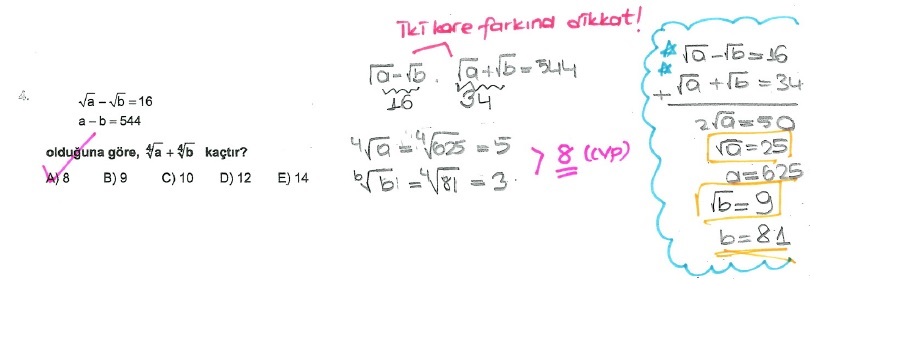 4.
√a − √b = 16
a − b = 544
olduğuna göre, ∜a + ∜b kaçtır?
A) 8 B) 9 C) 10 D) 12 E) 14
İki kare farkına dikkat!
√a−√b . √a+√b = 544
16 34
⁴√a = ⁴√625 = 5
ᵇ√b = ⁴√81 = 3
> 8 (cvp)
√a −√b = 16
+ √a +√b = 34
2√a = 50
√a = 25
a = 625
√b = 9
b = 81